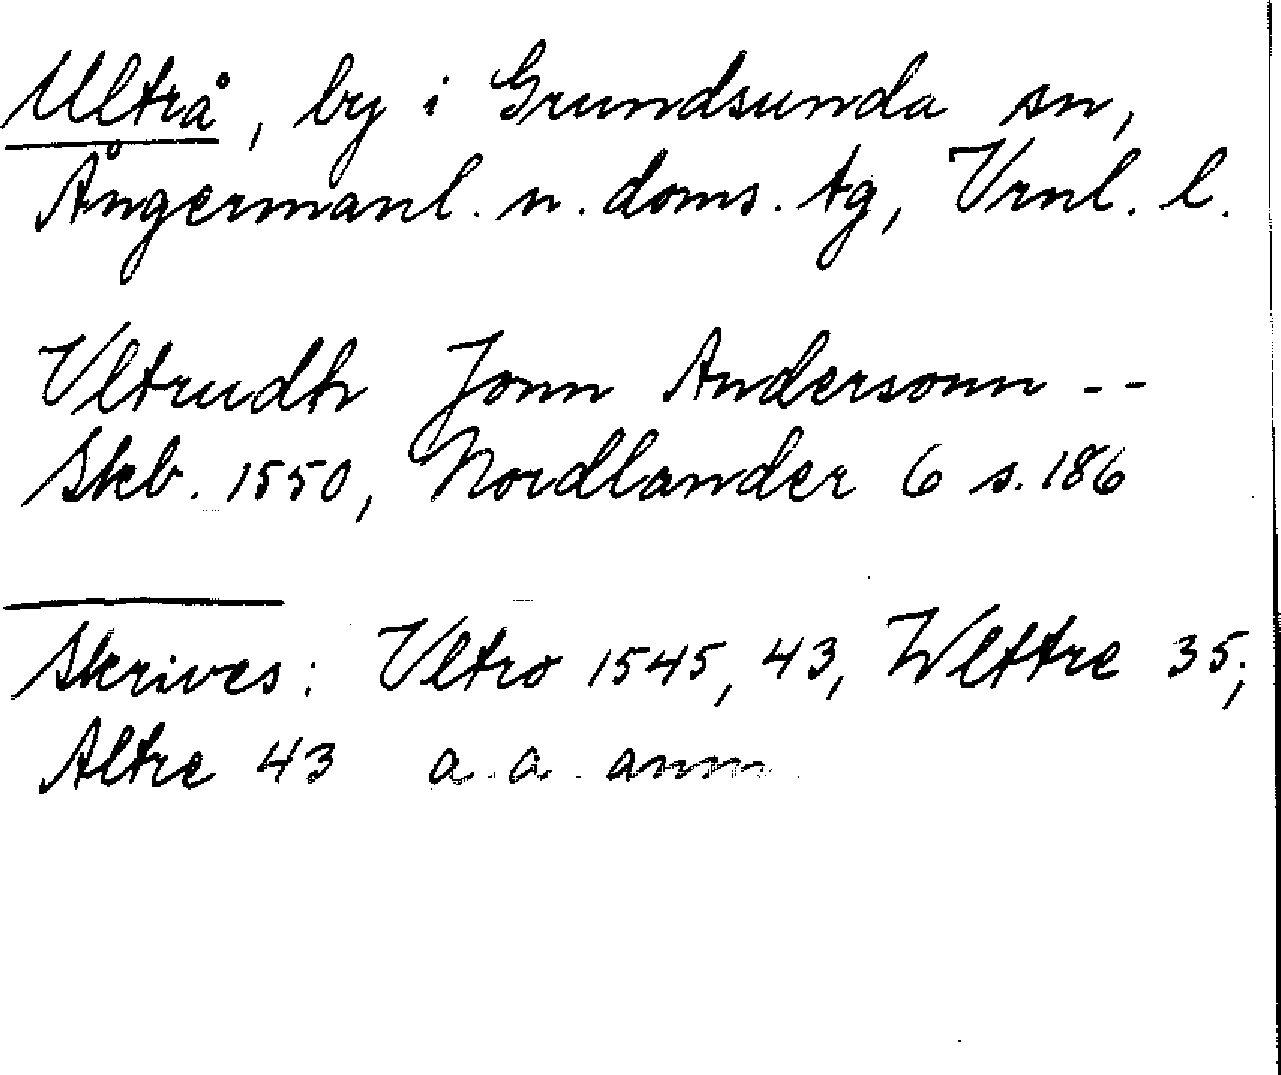 Ultrå, by i Grundsunda sn,
Ångermanl. n. doms. tg, Vrnl. l.
Vltrudh Jonn Andersonn --
Skb. 1550, Nordlander 6 s. 186
Skrives: Vltro 1545, 43, Wlttre 35;
Altre 43 a. a. anm.